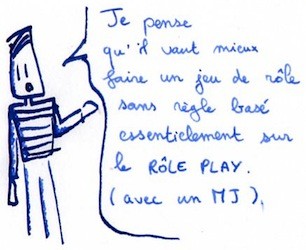 Je pense
qu'il vaut mieux
faire un jeu de rôle
sans règle basé
essentiellement sur
le RÔLE PLAY.
(avec un MJ).